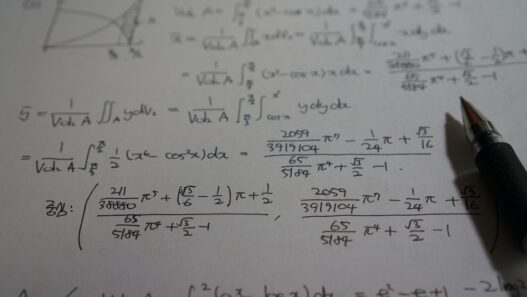 Vol₂ A = ∫_{π/3}^{π/2} (x³ - cos x) dx = 65/5184 π⁴ + √3/2 - 1
x̄ = 1/(Vol₂ A) ∬_A x dV₂ = 1/(Vol₂ A) ∫_{π/3}^{π/2} ∫_{cos x}^{x³} x dy dx
= 1/(Vol₂ A) ∫_{π/3}^{π/2} (x³ - cos x) x dx = (211/38880 π⁵ + (√3/6 - 1/2)π + / (65/5184 π⁴ + √3/2 - 1)
ȳ = 1/(Vol₂ A) ∬_A y dV₂ = 1/(Vol₂ A) ∫_{π/3}^{π/2} ∫_{cos x}^{x³} y dy dx
= 1/(Vol₂ A) ∫_{π/3}^{π/2} 1/2 (x⁶ - cos²x) dx = (2059/3919104 π⁷ - 1/24 π + √3/16) / (65/5184 π⁴ + √3/2 - 1) .
중심: ( (211/38880 π⁵ + (√3/6 - 1/2)π + 1/2) / (65/5184 π⁴ + √3/2 - 1) , (2059/3919104 π⁷ - 1/24 π + √3/16) / (65/5184 π⁴ + √3/2 - 1) )
dx = e² - e + 1 - 2 log